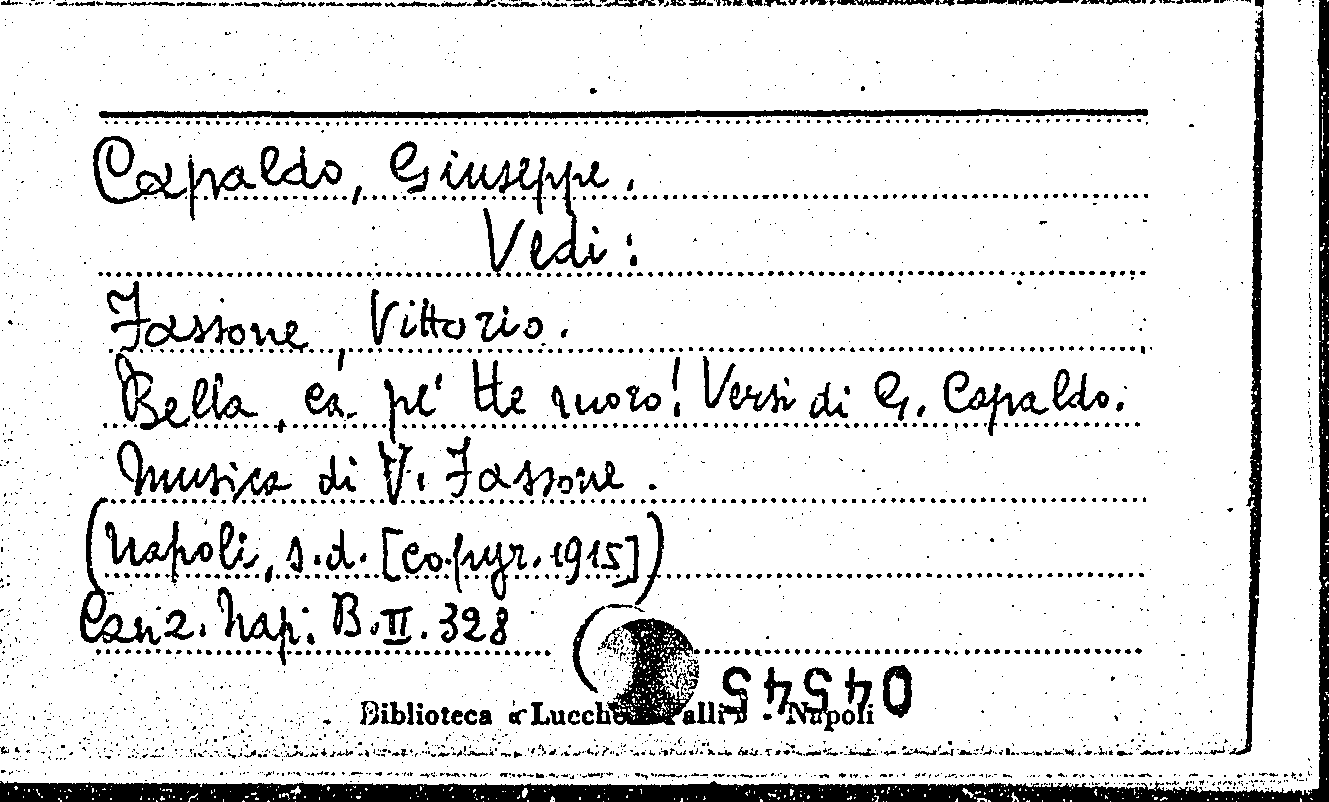 Capaldo, Giuseppe.
Vedi:
Fassone, Vittorio.
Bella, ca pe' tte moro! Versi di G. Capaldo.
Musica di V. Fassone.
(Napoli, s.d. [copyr. 1915])
Canz. Nap. B.II.328
04545
Biblioteca « Lucchesi Palli » - Napoli